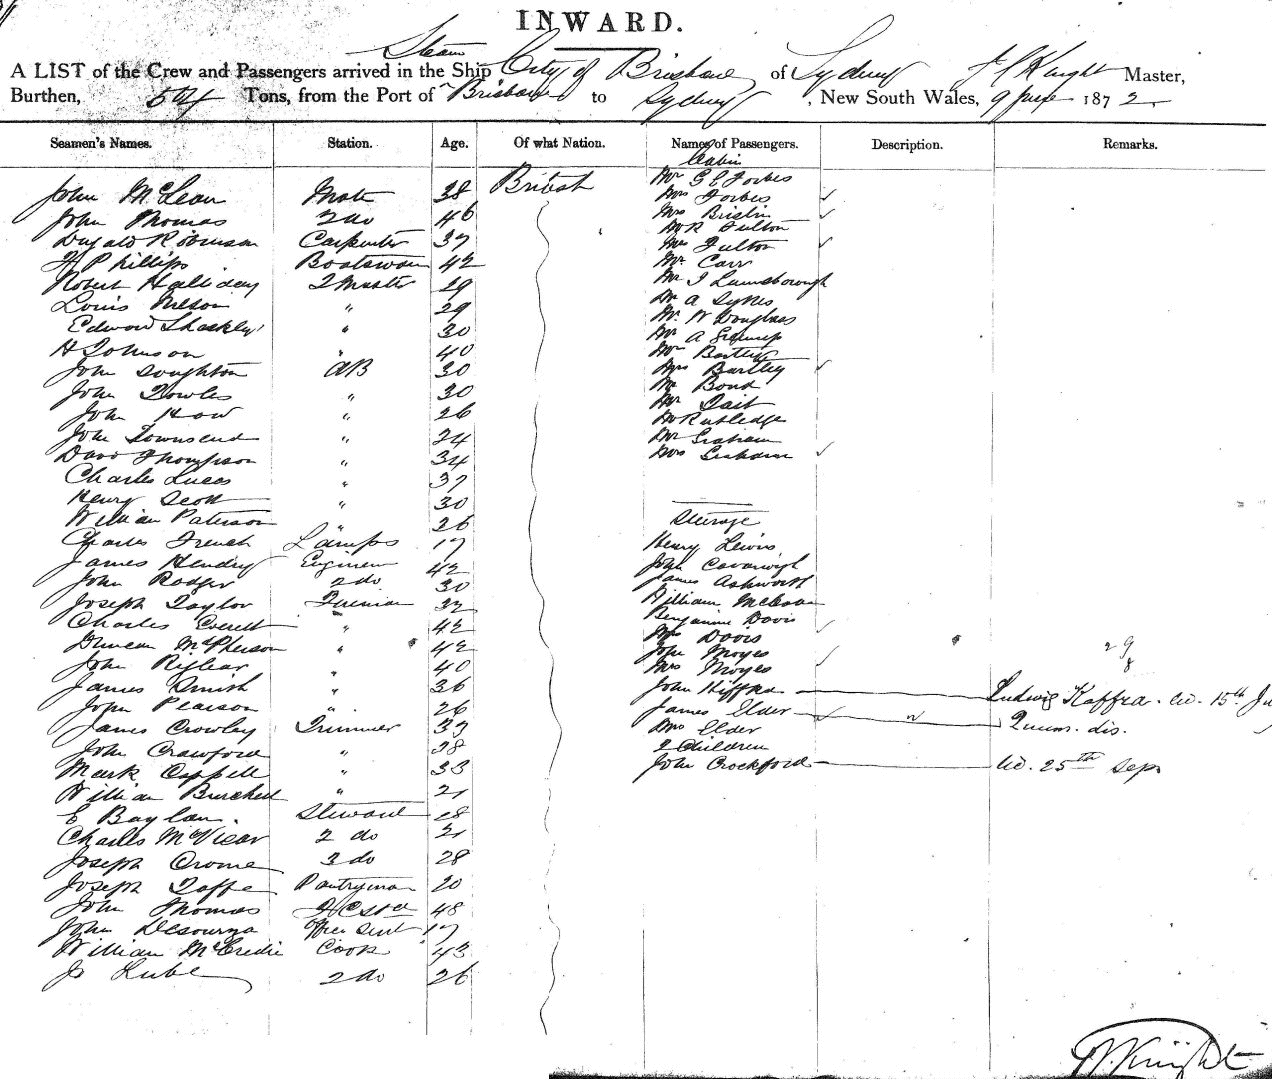 INWARD.
Steam
A LIST of the Crew and Passengers arrived in the Ship City of Brisbane of Sydney Knight Master,
Burthen, 504 Tons, from the Port of Brisbane to Sydney, New South Wales, 9 June 1872
Seamen's Names. Station. Age. Of what Nation. Names of Passengers. Description. Remarks.
John McLean Mate 38 British
John Thomas 2 do 46
Dugald Robinson Carpenter 37
H Phillips Boatswain 42
Robert Halliday 2 Master 29
Louis Nelson " 29
Edward " 30
H Johnson " 40
John Doughton AB 30
John Fowles " 30
John How " 26
John Townsend " 24
David Thompson " 34
Charles Lucas " 37
Henry Scott " 30
William Paterson " 26
Charles French Lamps 17
James Hendry Engineer 42
John Rodger 2 do 30
Joseph Taylor Fireman 32
Charles Everett " 42
Duncan McPherson " 42
John " 40
James Smith " 36
John Pearson " 26
James Crowley Trimmer 33
John Crawford " 28
Mark Cappell " 33
William Burchell " 21
E Baylan. Steward 28
Charles McVicar 2 do 21
Joseph Crome 3 do 28
Joseph Taffe Pantryman 20
John Thomas 48
John Desouza 17
William McCredie Cook 43
2 do 26
Cabin
Mr G E Forbes
Mrs Forbes ✓
Mrs Brislin ✓
Mr R Fulton
Mrs Fulton ✓
Mr Carr
Mr J
Mr A Sykes
Mr W Douglass
Mr A
Mr Bartley
Mrs Bartley ✓
Mr Bond
Mr Tait
Mr Rutledge
Mr Graham
Mrs Graham ✓
Steerage
Henry Lewis
John
James Ashworth
William
Benjamin Davis
Mrs Davis ✓
John Moyes
Mrs Moyes ✓
John Ludwig Kaffra. 15th
James Elder dis.
Mrs Elder ✓
2 Children
John Crockford 25th Sep
29
8
Knight